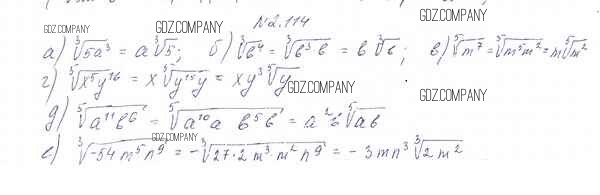 №2.114
GDZ.COMPANY GDZ.COMPANY GDZ.COMPANY
а) ∛(5a³) = a∛5; б) ∛(b⁴) = ∛(b³b) = b∛b; в) ⁵√(m⁷) = ⁵√(m⁵m²) = m⁵√(m²)
г) ⁵√(x⁵y¹⁶) = x ⁵√(y¹⁵y) = xy³ ⁵√y
GDZ.COMPANY GDZ.COMPANY
д) ⁵√(a¹¹b⁶) = ⁵√(a¹⁰a b⁵b) = a²b ⁵√(ab)
GDZ.COMPANY
е) ∛(-54m⁵n⁹) = -∛(27·2m³·m²n⁹) = -3mn³ ∛(2m²)